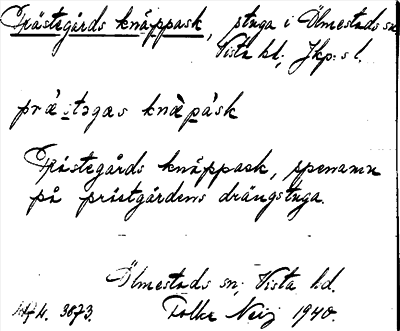 Prästegårds knäppask, stuga i Ölmestads sn,
Vista hd; Jkp:s l.
præ̀stəgas knæ̀pàsk
Prästegårds knäppask, öpenamn
på prästgårdens drängstuga.
Ölmestads sn; Vista hd.
3873. Folke Neij 1940.